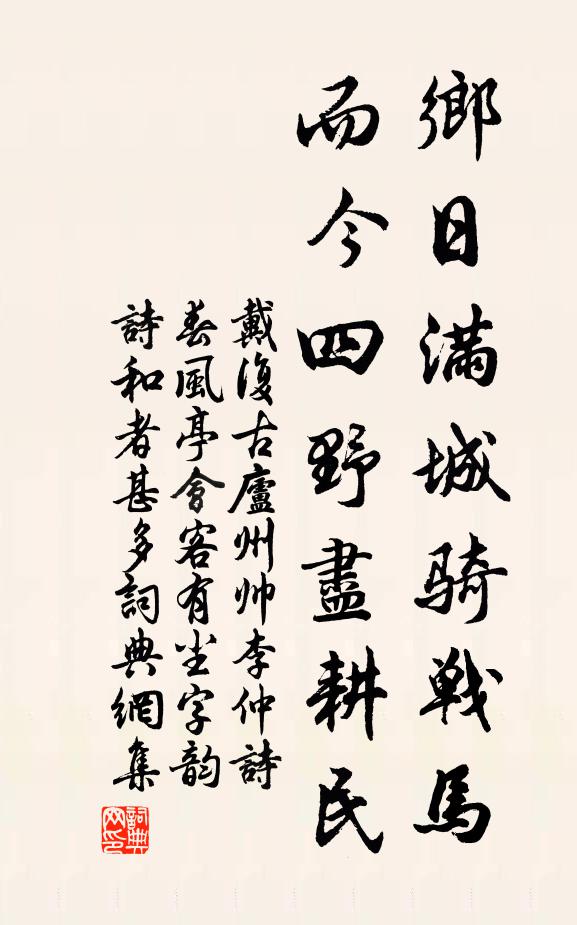 鄉日滿城騎戰馬
而今四野盡耕民
戴復古廬州帅李仲詩
春風亭會客有尘字韵
詩和者甚多詞典網集
詞典網印